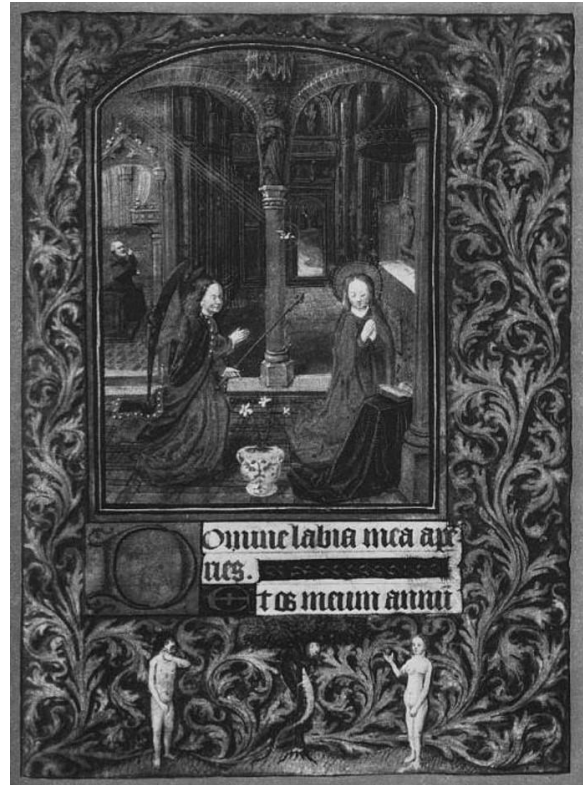 Domine labia mea ape
ries.
Et os meum annū